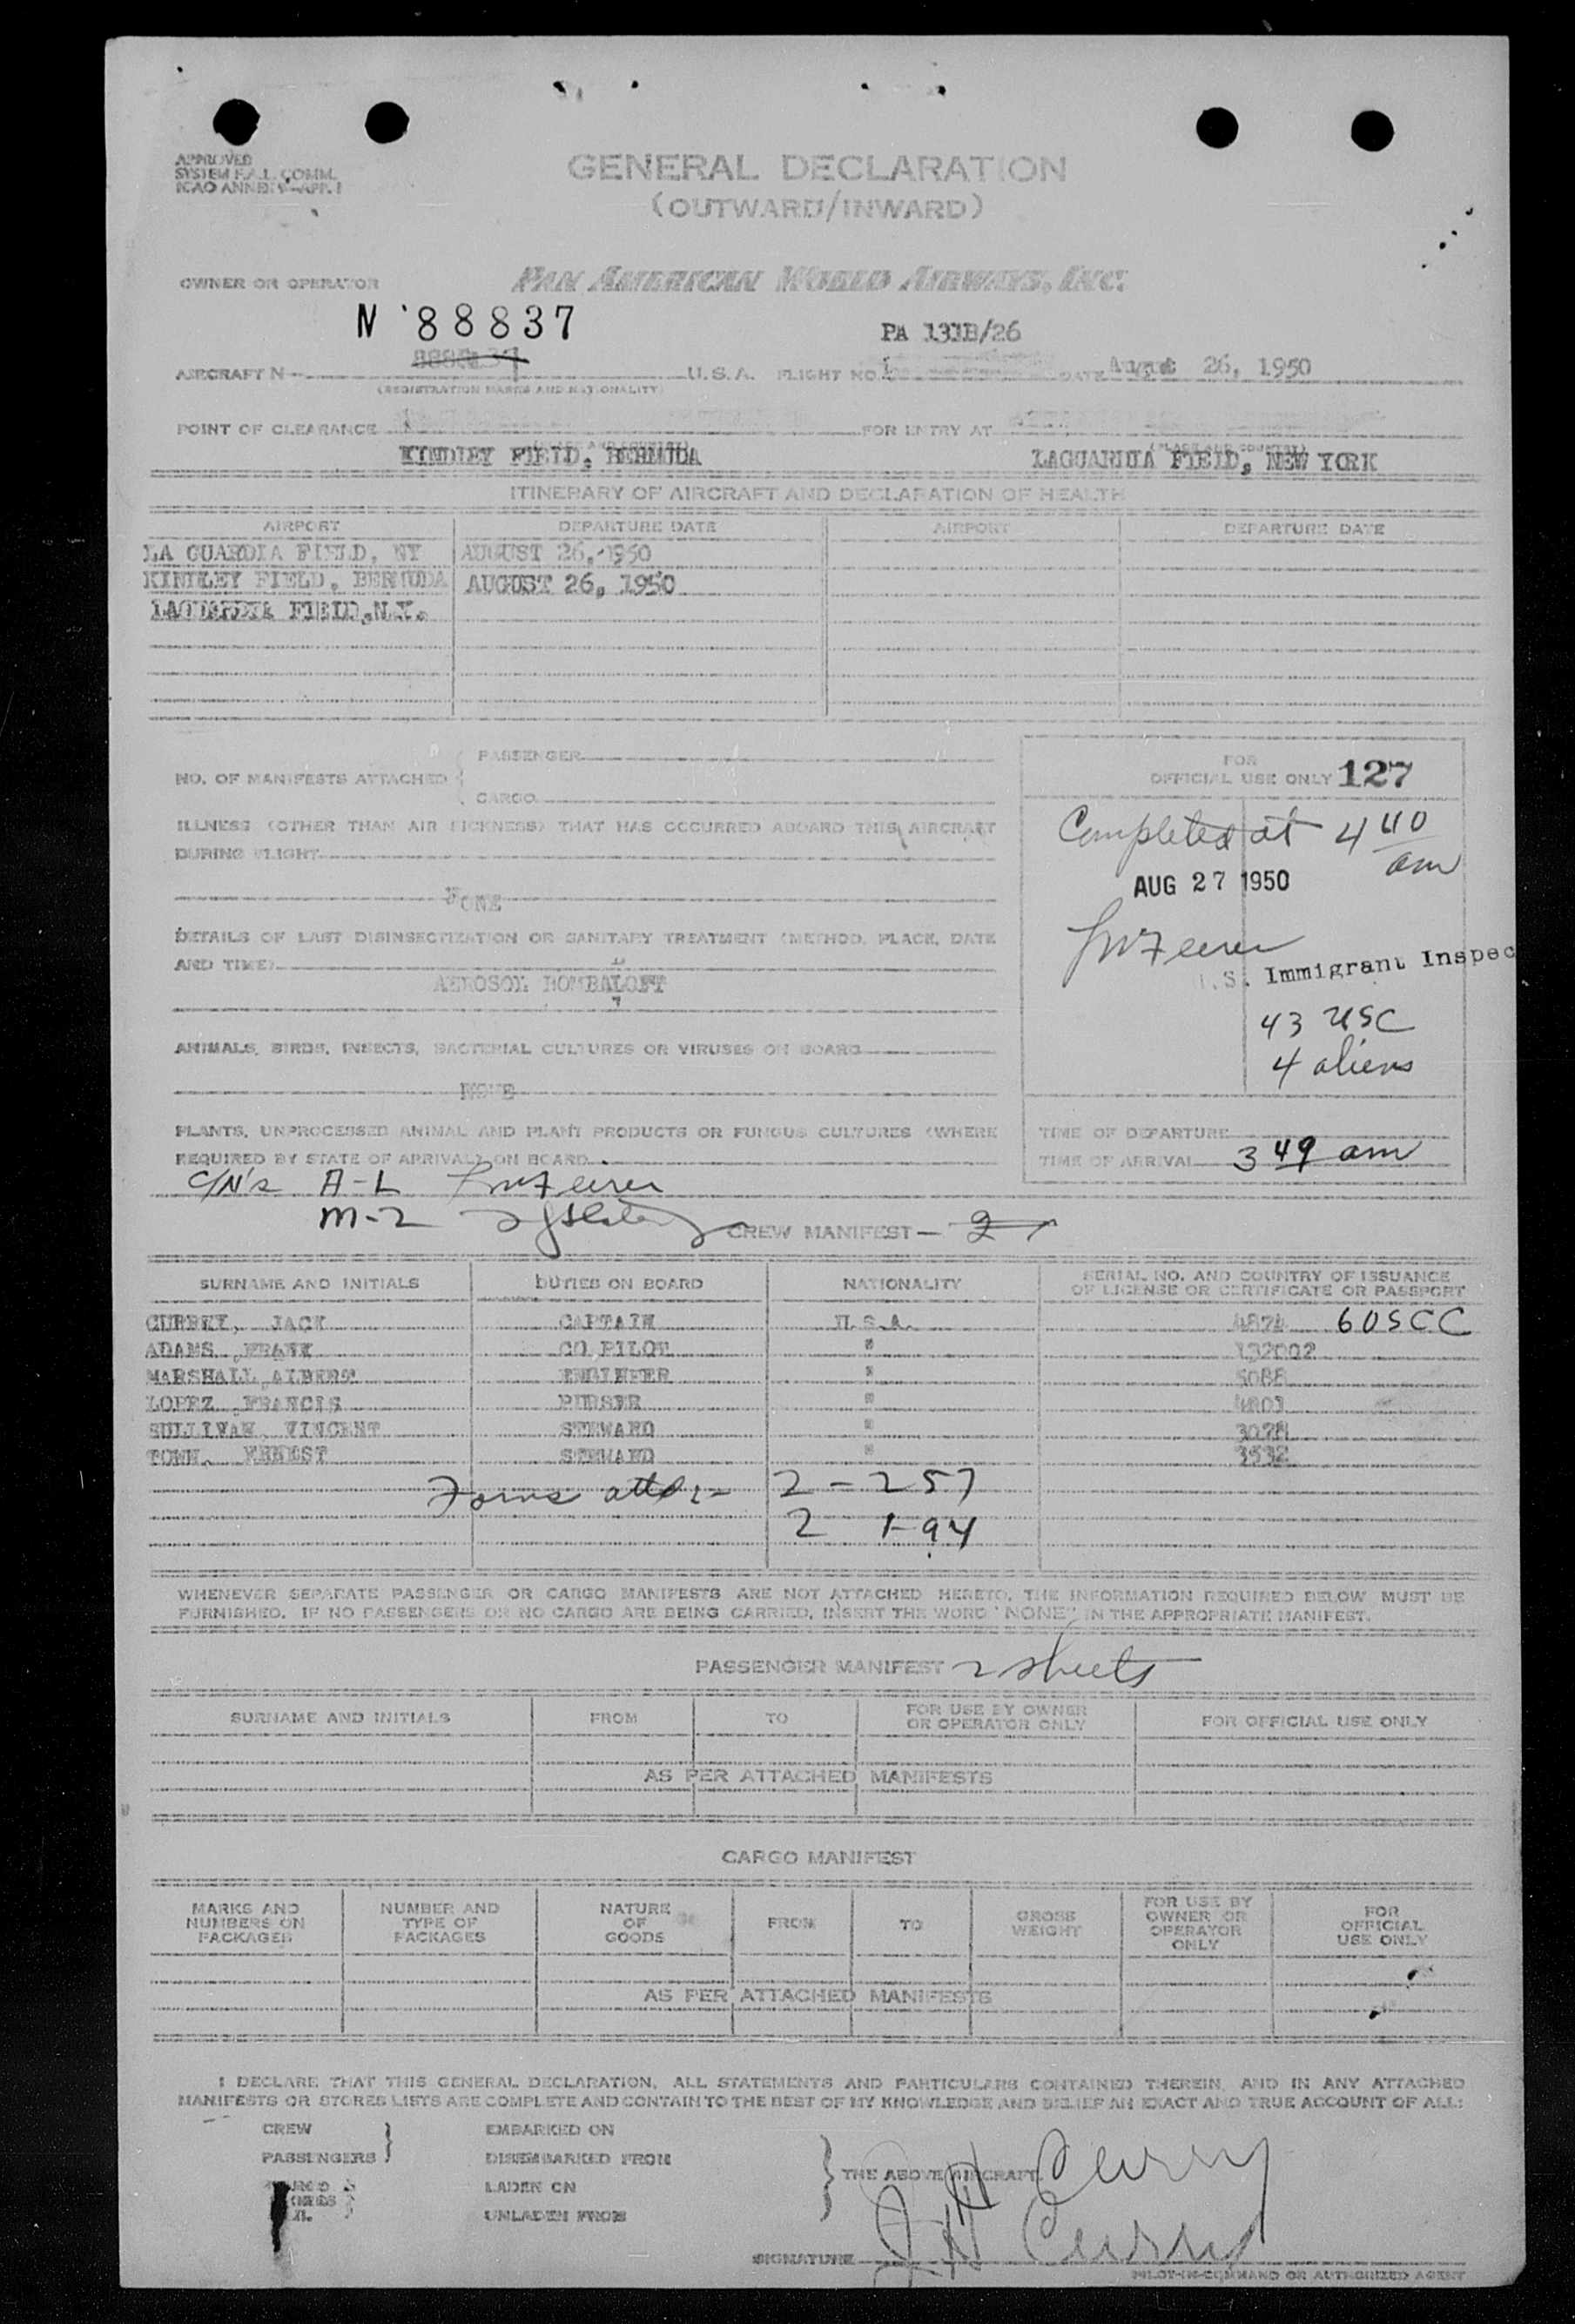 APPROVED
SYSTEM F.A.L. COMM.
ICAO ANNEX 9-APP. 1
GENERAL DECLARATION
(OUTWARD/INWARD)
OWNER OR OPERATOR PAN AMERICAN WORLD AIRWAYS, INC.
N 88837
PA 131B/26
AIRCRAFT N U.S.A. FLIGHT NO. DATE August 26, 1950
(REGISTRATION MARKS AND NATIONALITY)
POINT OF CLEARANCE FOR ENTRY AT
(PLACE AND COUNTRY) (PLACE AND COUNTRY)
KINDLEY FIELD, BERMUDA LAGUARDIA FIELD, NEW YORK
ITINERARY OF AIRCRAFT AND DECLARATION OF HEALTH
AIRPORT DEPARTURE DATE AIRPORT DEPARTURE DATE
LA GUARDIA FIELD, NY AUGUST 26, 1950
KINDLEY FIELD, BERMUDA AUGUST 26, 1950
LAGUARDIA FIELD, N.Y.
NO. OF MANIFESTS ATTACHED
PASSENGER
CARGO
ILLNESS (OTHER THAN AIR SICKNESS) THAT HAS OCCURRED ABOARD THIS AIRCRAFT
DURING FLIGHT
NONE
DETAILS OF LAST DISINSECTIZATION OR SANITARY TREATMENT (METHOD, PLACE, DATE
AND TIME)
AEROSOL BOMB ALOFT
ANIMALS, BIRDS, INSECTS, BACTERIAL CULTURES OR VIRUSES ON BOARD
NONE
PLANTS, UNPROCESSED ANIMAL AND PLANT PRODUCTS OR FUNGUS CULTURES (WHERE
REQUIRED BY STATE OF ARRIVAL) ON BOARD
FOR
OFFICIAL USE ONLY 127
Completed at 4 40
am
AUG 27 1950
U.S. Immigrant Inspec
43 USC
4 aliens
TIME OF DEPARTURE
TIME OF ARRIVAL 3 49 am
C/N's A-L
M-Z
CREW MANIFEST
SURNAME AND INITIALS DUTIES ON BOARD NATIONALITY SERIAL NO. AND COUNTRY OF ISSUANCE
OF LICENSE OR CERTIFICATE OR PASSPORT
CURREY, JACK CAPTAIN U.S.A. 4874 60SCC
ADAMS, FRANK CO PILOT " 132002
MARSHALL, ALBERT ENGINEER " 5088
LOPEZ, FRANCIS PURSER " 4801
SULLIVAN, VINCENT STEWARD " 3078
TOWN, ERNEST STEWARD " 3532
Forms 2 - 257
2 I-94
WHENEVER SEPARATE PASSENGER OR CARGO MANIFESTS ARE NOT ATTACHED HERETO, THE INFORMATION REQUIRED BELOW MUST BE
FURNISHED. IF NO PASSENGERS OR NO CARGO ARE BEING CARRIED, INSERT THE WORD "NONE" IN THE APPROPRIATE MANIFEST.
PASSENGER MANIFEST 2 sheets
SURNAME AND INITIALS FROM TO FOR USE BY OWNER
OR OPERATOR ONLY FOR OFFICIAL USE ONLY
AS PER ATTACHED MANIFESTS
CARGO MANIFEST
MARKS AND
NUMBERS ON
PACKAGES
NUMBER AND
TYPE OF
PACKAGES
NATURE
OF
GOODS
FROM
TO
GROSS
WEIGHT
FOR USE BY
OWNER OR
OPERATOR
ONLY
FOR
OFFICIAL
USE ONLY
AS PER ATTACHED MANIFESTS
I DECLARE THAT THIS GENERAL DECLARATION, ALL STATEMENTS AND PARTICULARS CONTAINED THEREIN, AND IN ANY ATTACHED
MANIFESTS OR STORES LISTS ARE COMPLETE AND CONTAIN TO THE BEST OF MY KNOWLEDGE AND BELIEF AN EXACT AND TRUE ACCOUNT OF ALL:
CREW EMBARKED ON
PASSENGERS DISEMBARKED FROM
LADEN ON
UNLADEN FROM
THE ABOVE AIRCRAFT
J H Curry
SIGNATURE J H Curry
PILOT-IN-COMMAND OR AUTHORIZED AGENT